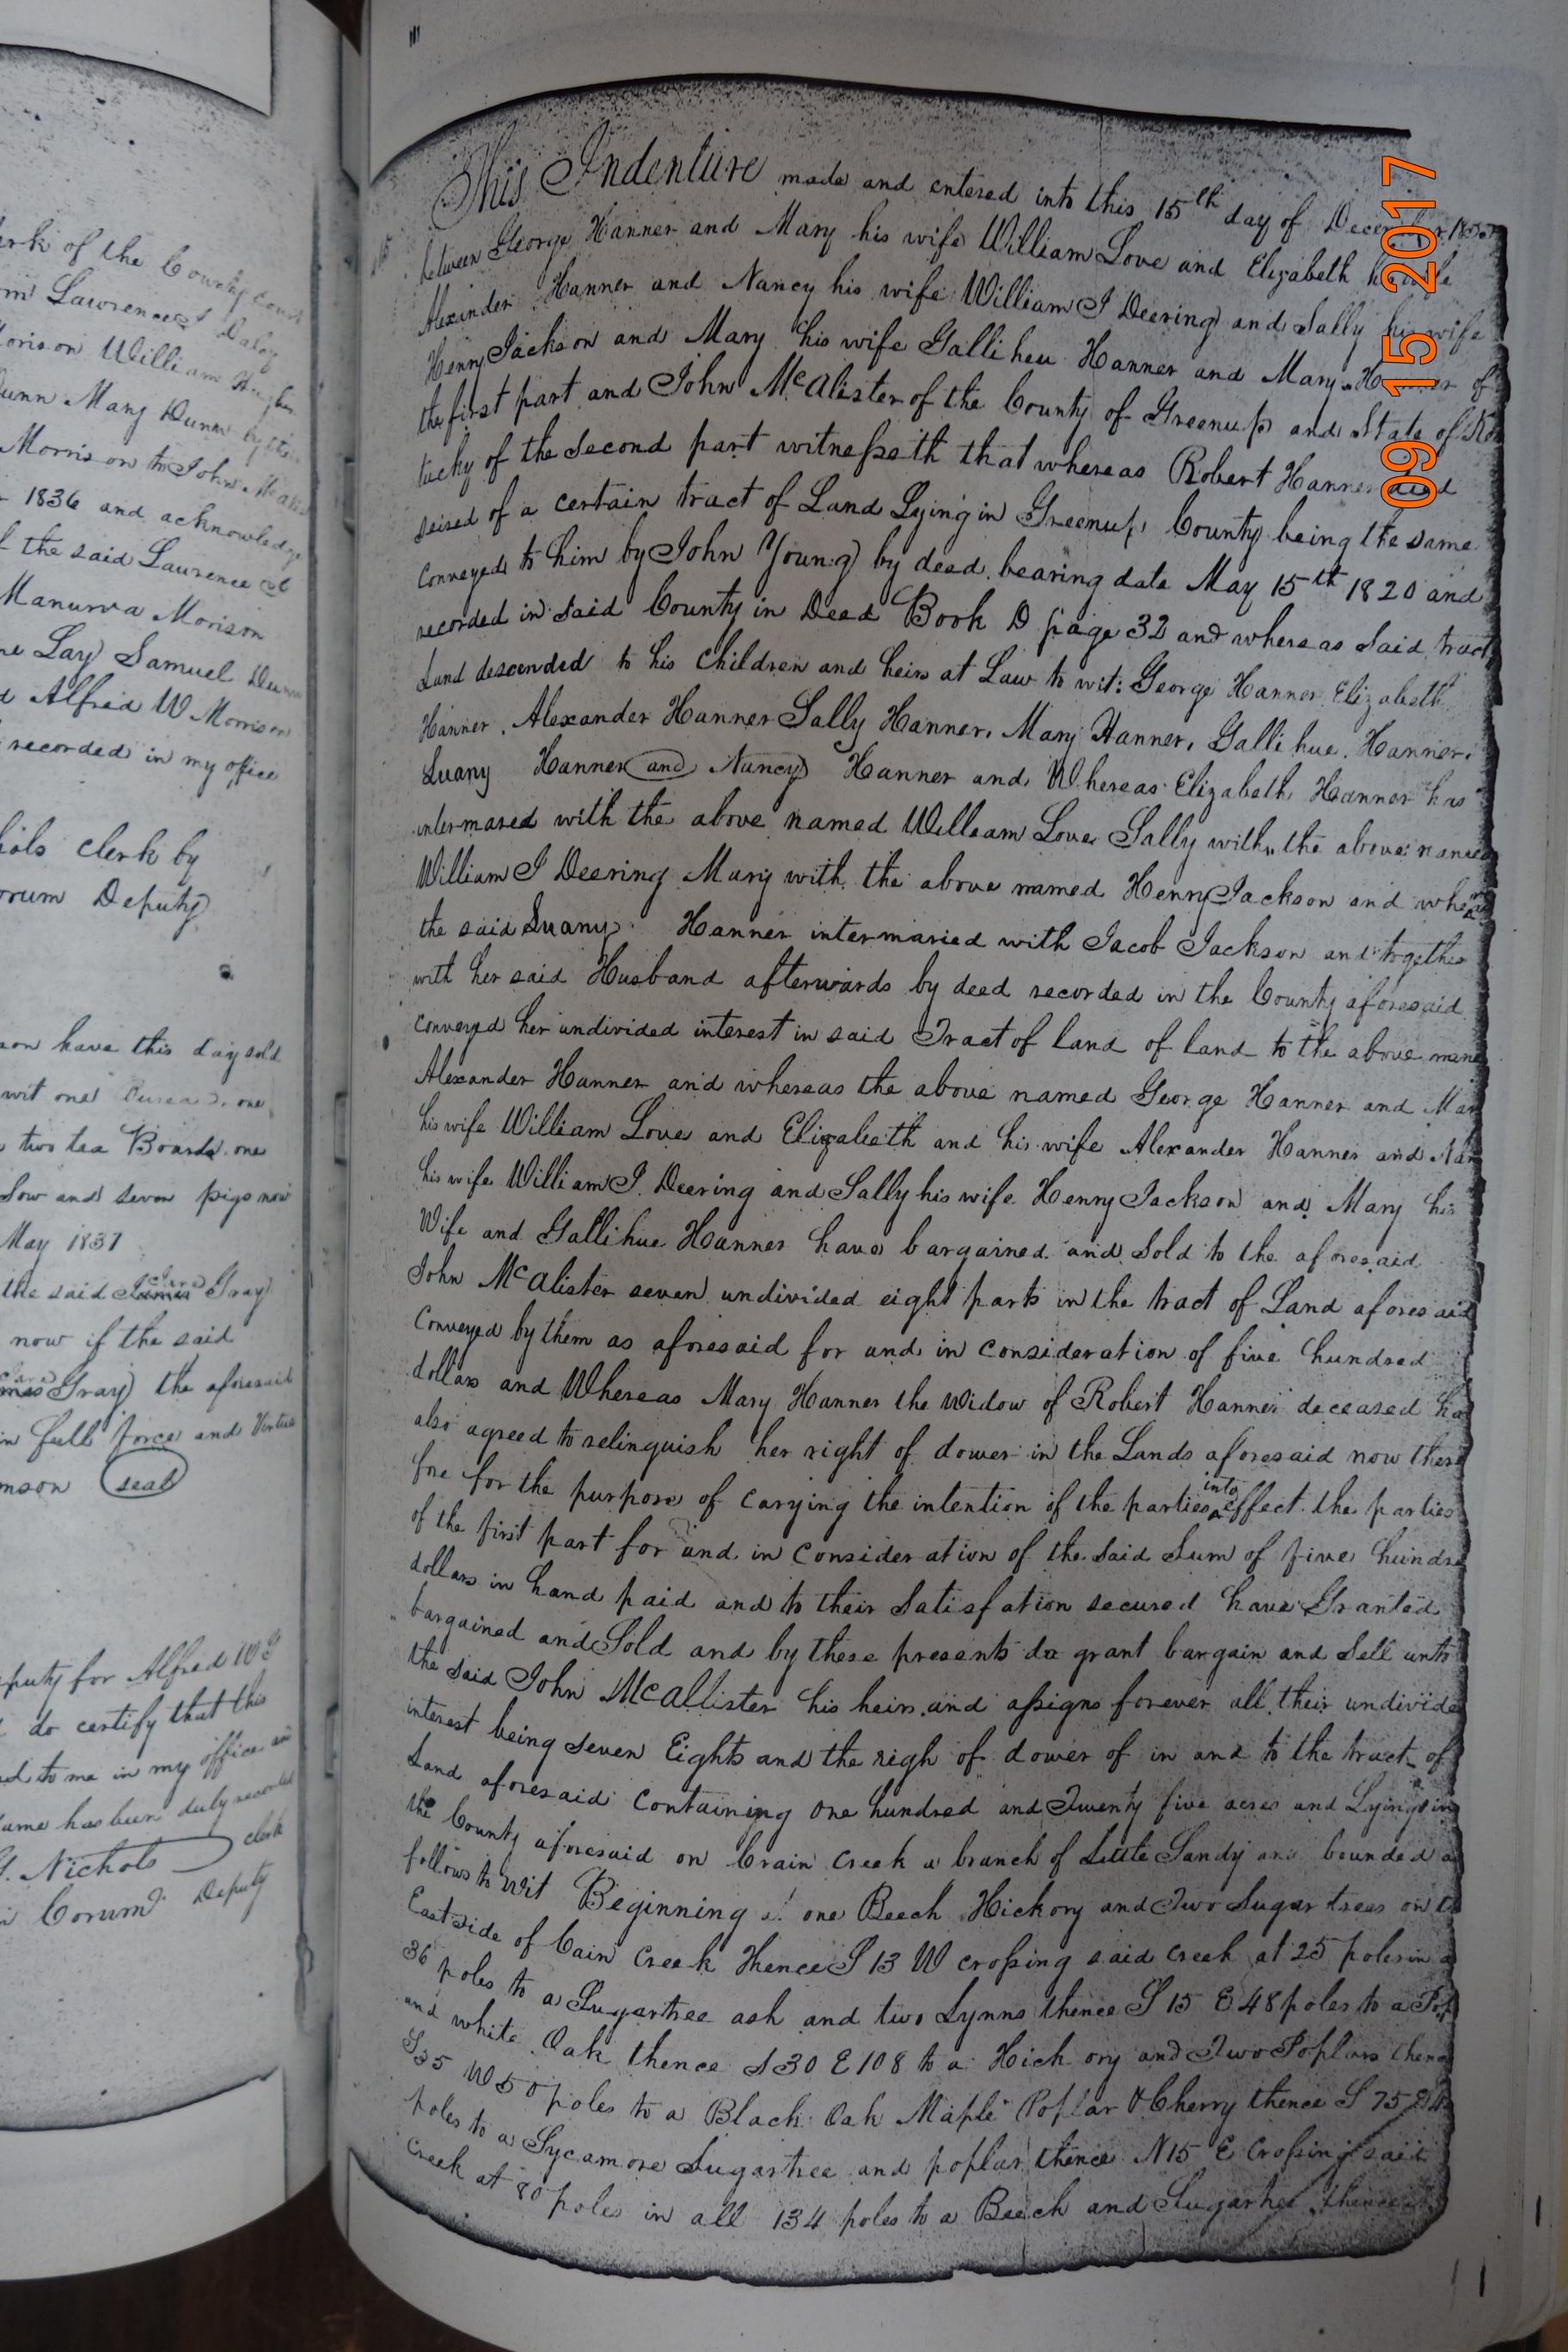 ark of the County Court
Lawrence
Morison William Hughes
Dunn Mary Dunn by their
Morrison to John
1836 and acknowledge
the said Lawrence
Manurva Morison
Lay Samuel
Alfred W Morrison
recorded in my office
clerk by
Deputy
have this day sold
wit one one
two tea Boards one
Sow and seven pigs now
May 1837
the said Gray
now if the said
Gray the aforesaid
in full force and Vertue
seal
for Alfred W
do certify that this
to me in my office
has been duly recorded
Nichols clerk
Corum Deputy
This Indenture made and entered into this 15th day of
between George Hanner and Mary his wife William Love and Elizabeth
Alexinder Hanner and Nancy his wife William J Deering and Sally his wife
Henry Jackson and Mary his wife Galliheu Hanner and Mary of
the first part and John McAlister of the County of Greenup and State of Ken
tucky of the second part witnesseth that whereas Robert Hanner died
seised of a certain tract of Land Lying in Greenup County being the same
conveyed to him by John Young by deed bearing date May 15th 1820 and
recorded in said County in Deed Book D page 32 and whereas said tract
Land descended to his children and heirs at Law to wit: George Hanner Elizabeth
Hanner, Alexander Hanner Sally Hanner, Mary Hanner, Gallihue Hanner,
Luany Hanner and Nancy Hanner and Whereas Elizabeth Hanner has
intermared with the above named William Love Sally with the above named
William J Deering Mary with the above named Henry Jackson and whereas
the said Luany Hanner intermaried with Jacob Jackson and together
with her said Husband afterwards by deed recorded in the County aforesaid
conveyed her undivided interest in said Tract of land of land to the above
Alexander Hanner and whereas the above named George Hanner and Mar
his wife William Love and Elizabeth and his wife Alexander Hanner and Nan
his wife William J. Deering and Sally his wife Henry Jackson and Mary his
Wife and Gallihue Hanner have bargained and Sold to the aforesaid
John McAlister seven undivided eight parts in the tract of Land aforesaid
Conveyed by them as aforesaid for and in consideration of five hundred
dollars and Whereas Mary Hanner the widow of Robert Hanner deceased has
also agreed to relinquish her right of dower in the Lands aforesaid now there
fore for the purpose of carying the intention of the parties into effect the parties
of the first part for and in consideration of the said Sum of five hundre
dollars in hand paid and to their Satisfation secured have Granted
bargained and Sold and by these presents do grant bargain and Sell unto
the said John McAllister his heirs and assigns forever all their undivide
interest being seven Eights and the righ of dower of in and to the tract of
Land aforesaid containing one hundred and Twenty five acres and Lying in
the County aforesaid on Crain Creek a branch of Little Sandy and bounded as
follows to wit Beginning at one Beech Hickory and Two Sugar trees on the
East side of Cain Creek thence S 13 W crossing said creek at 25 poles in a
36 poles to a Sugartree ash and two Lynns thence S 15 E 48 poles to a Pop
and white Oak thence S 30 E 108 to a Hickory and Two Poplars thence
S 35 W 50 poles to a Black Oak Maple Poplar & Cherry thence S 75
poles to a Sycamore Sugartree and poplar thence N 15 E Crossing said
Creek at 80 poles in all 134 poles to a Beech and Sugartree thence
09 15 2017